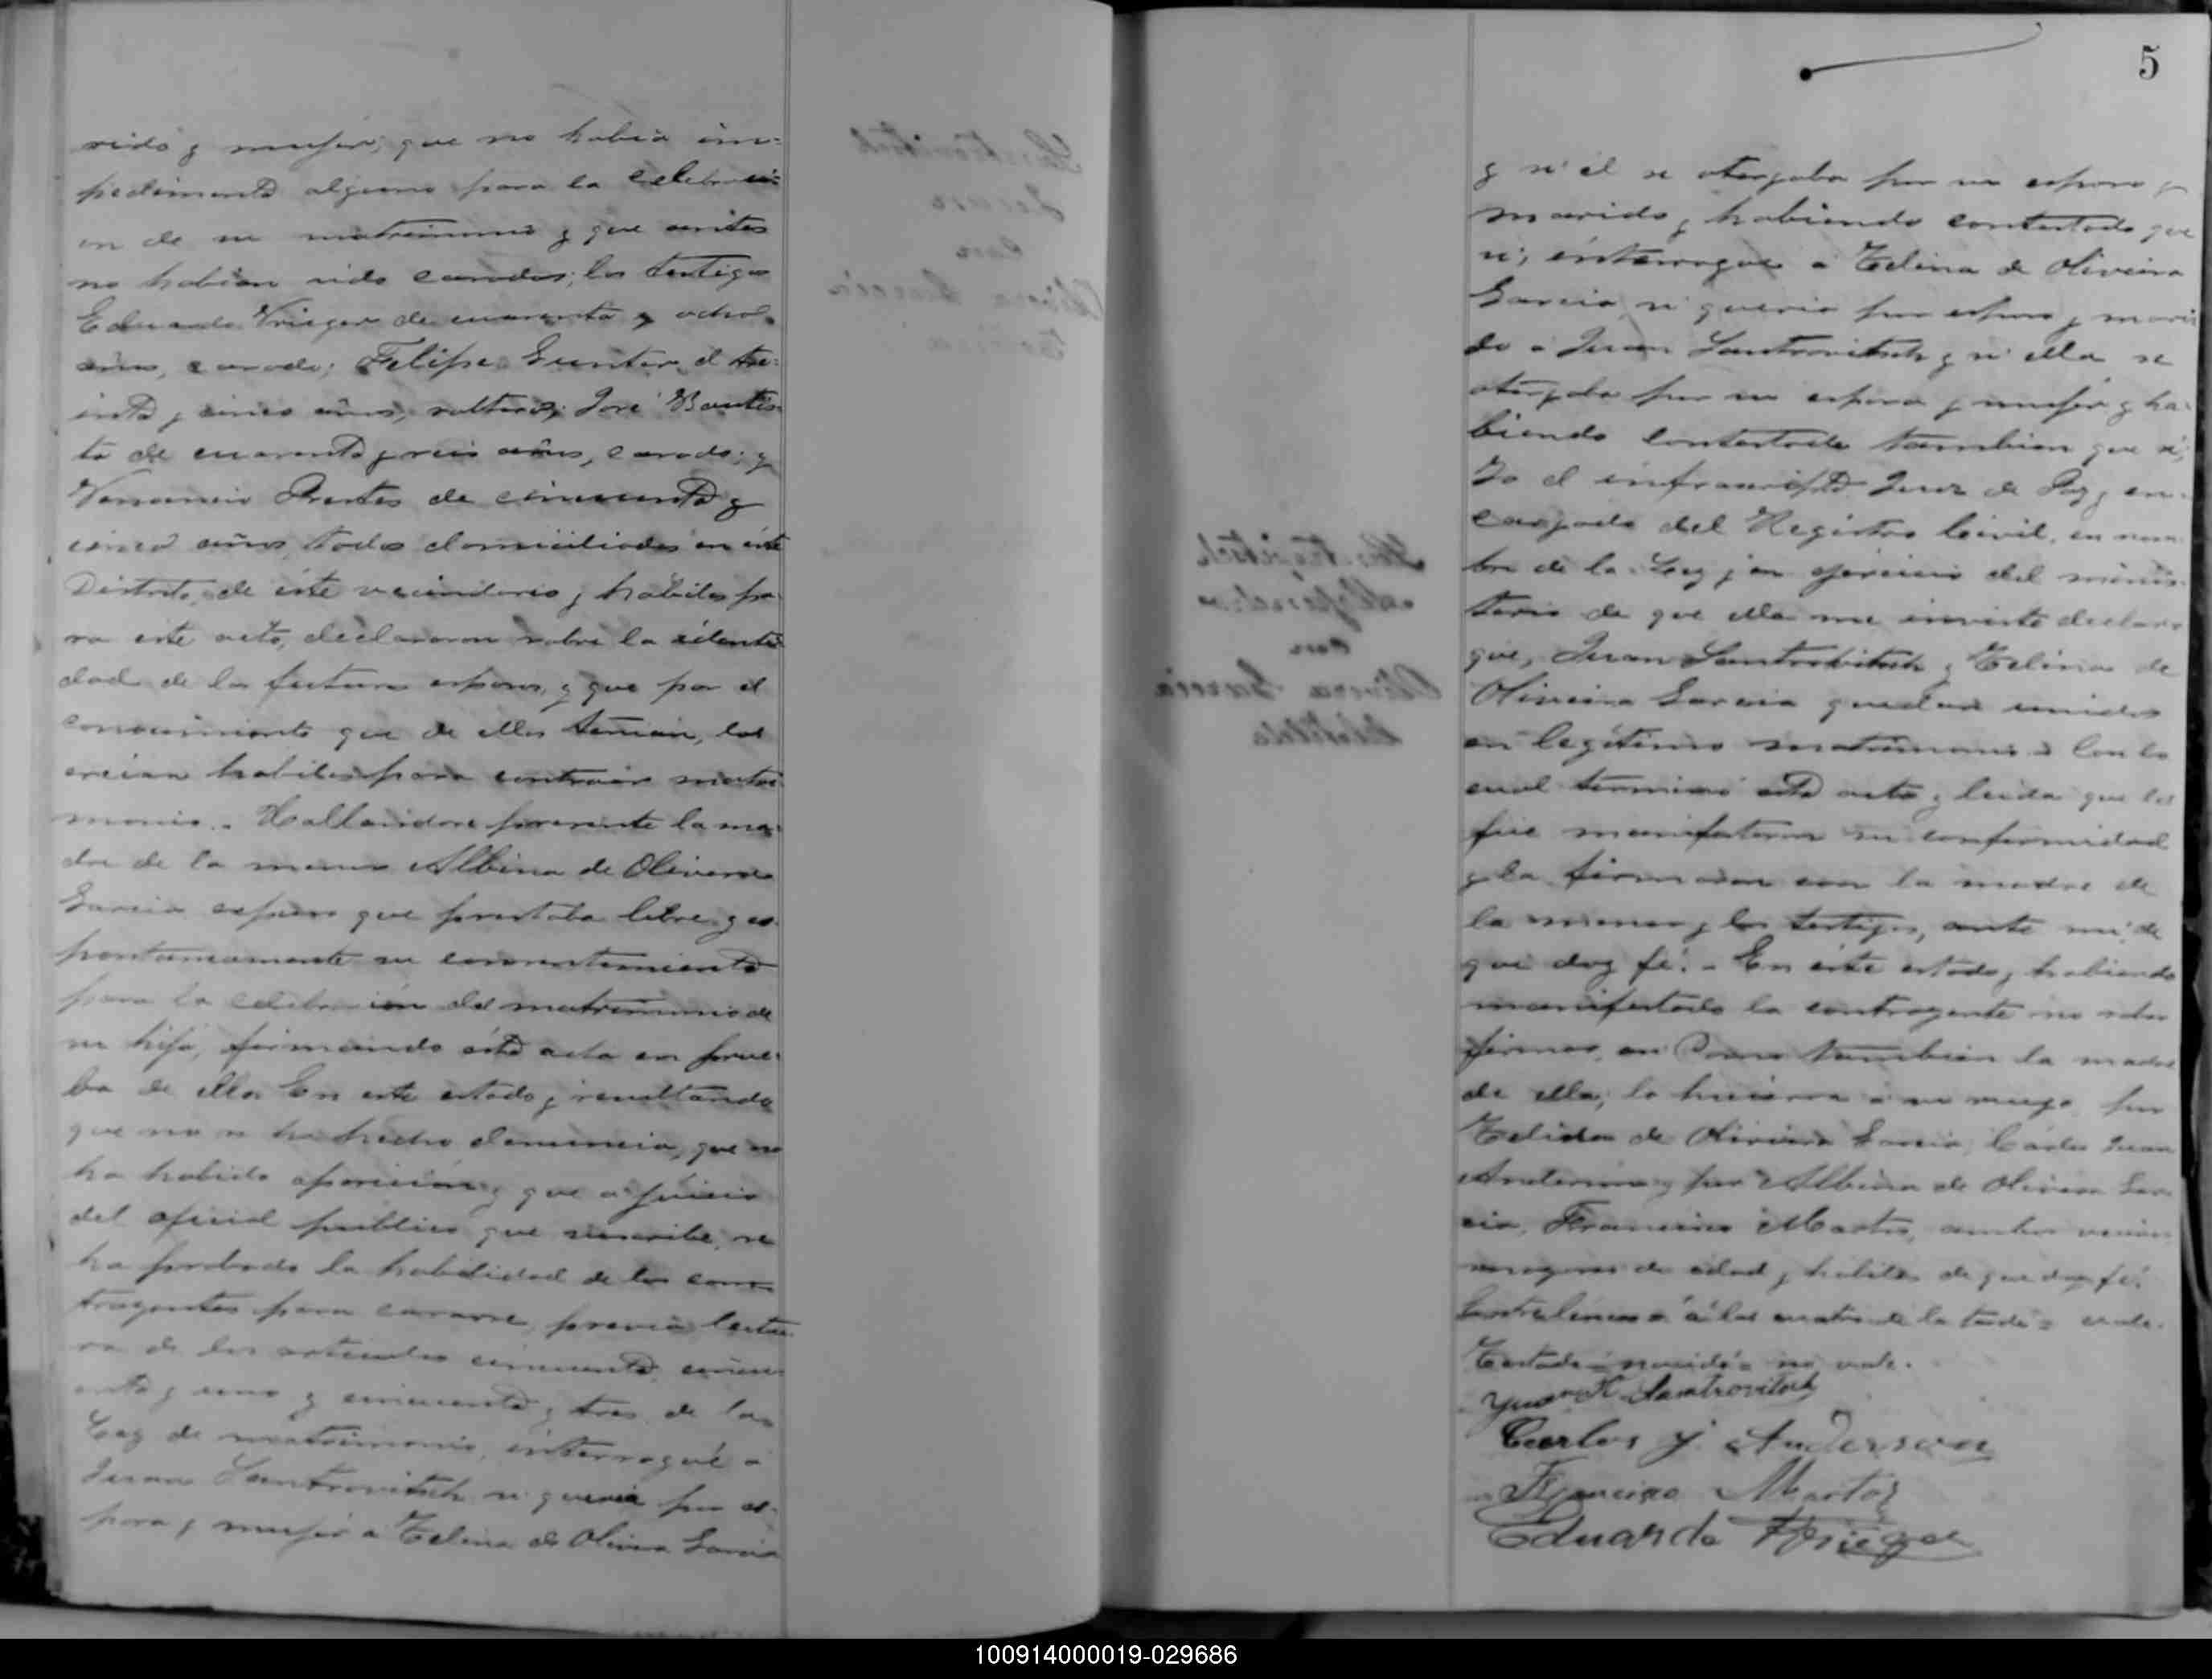 rido y mujer; que no habia im-
pedimento alguno para la celebraci-
on de su matrimonio y que antes
no habian sido casados; los testigos
Eduardo Krieger de cuarenta y ocho
años, casado; Felipe Gunter, de tre-
inta y cinco años, soltero; José Bautis-
ta de cuarenta y seis años, casado; y
Venancio Prestes de cincuenta y
cinco años, todos domiciliados en este
Distrito, de éste vecindario y habiles pa-
ra este acto, declararon sobre la identi-
dad de los futuros esposos, y que por el
conocimiento que de ellos tenian, los
creian habiles para contraer matri-
monio. - Hallandose presente la ma-
dre de la menor Albina de Olivera
Garcia expuso que prestaba libre y es-
pontaneamente su consentimiento
para la celebracion del matrimonio de
su hija, firmando ésta acta en prue-
ba de ello. En este estado y resultando
que no se ha hecho denuncia, que no
ha habido oposicion y que a juicio
del oficial publico que suscribe, se
ha probado la habilidad de los con-
trayentes para casarse, previa lectu-
ra de los articulos cincuenta, cincu-
enta y uno y cincuenta y tres de la
Ley de matrimonio, interrogué á
Juan Santrovitsch si queria por es-
posa y mujer a Zelina de Olivera Garcia
5
y si él se otorgaba por su esposo y
marido y habiendo contestado que
si; interrogue a Zelina de Oliveira
Garcia si queria por esposo y mari-
do á Juan Santrovitsch y si ella se
otorgaba por su esposa y mujer y ha-
biendo contestado tambien que si,
Yo el infrascripto Juez de Paz y en-
cargado del Registro Civil, en nom-
bre de la Ley y en ejercicio del minis-
terio de que ella me inviste declaro
que, Juan Santrovitsch y Zelina de
Oliveira Garcia quedan unidos
en legítimo matrimonio. Con lo
cual terminó esta acta y leida que les
fué manifestaron su conformidad
y la firmaron con la madre de
la menor y los testigos, ante mi, de
que doy fé. - En éste estado y habiendo
manifestado la contrayente no saber
firmar, tambien la madre
de ella, lo hicieron a su ruego por
Zelina de Oliveira Garcia, Carlos Juan
Anderson y por Albina de Olivera Gar-
cia, Francisco Martos, ambos vecinos
mayores de edad y habiles de que doy fé.
Entrelineas = á las cuatro de la tarde = vale.
Testado = no vale.
Juan Santrovitsch
Carlos J. Anderson
Francisco Martos
Eduardo Krieger
Santrovitsch
Juan
con
Olivera Garcia
Zelina
Santrovitsch
Alejandro
con
Olivera Garcia
100914000019-029686